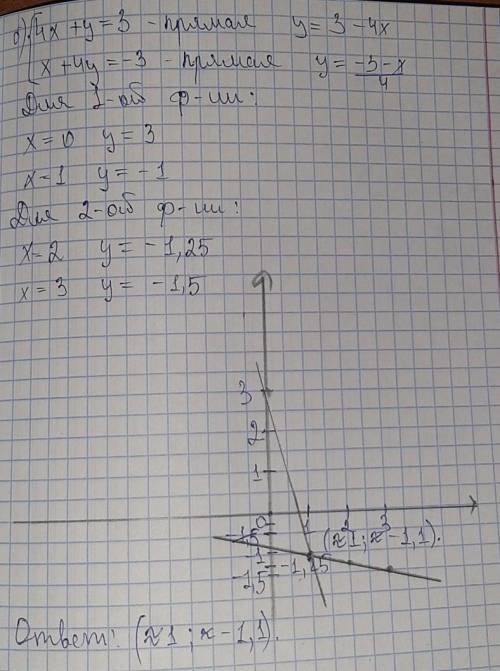 б) { 4x + y = 3 - прямая y = 3 - 4x
x + 4y = -3 - прямая y = \frac{-3-x}{4}
Для 1-ой ф-ии:
x = 0 y = 3
x = 1 y = -1
Для 2-ой ф-ии:
x = 2 y = -1,25
x = 3 y = -1,5
3
2
1
0 1 2 3
(≈1; ≈-1,1).
-1
-1,25
-1,5
Ответ: (≈1; ≈-1,1).